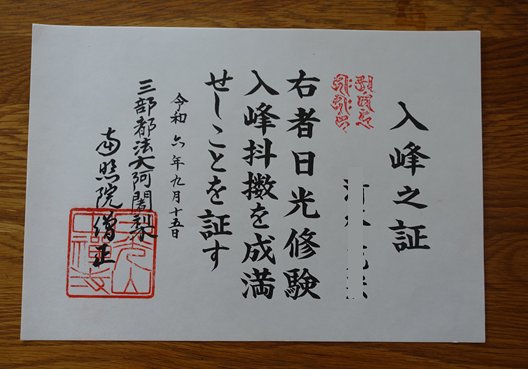 入峰之証
右者日光修験
入峰抖擻を成満
せしことを証す
令和六年九月十五日
三部都法大阿闍梨
照院僧正